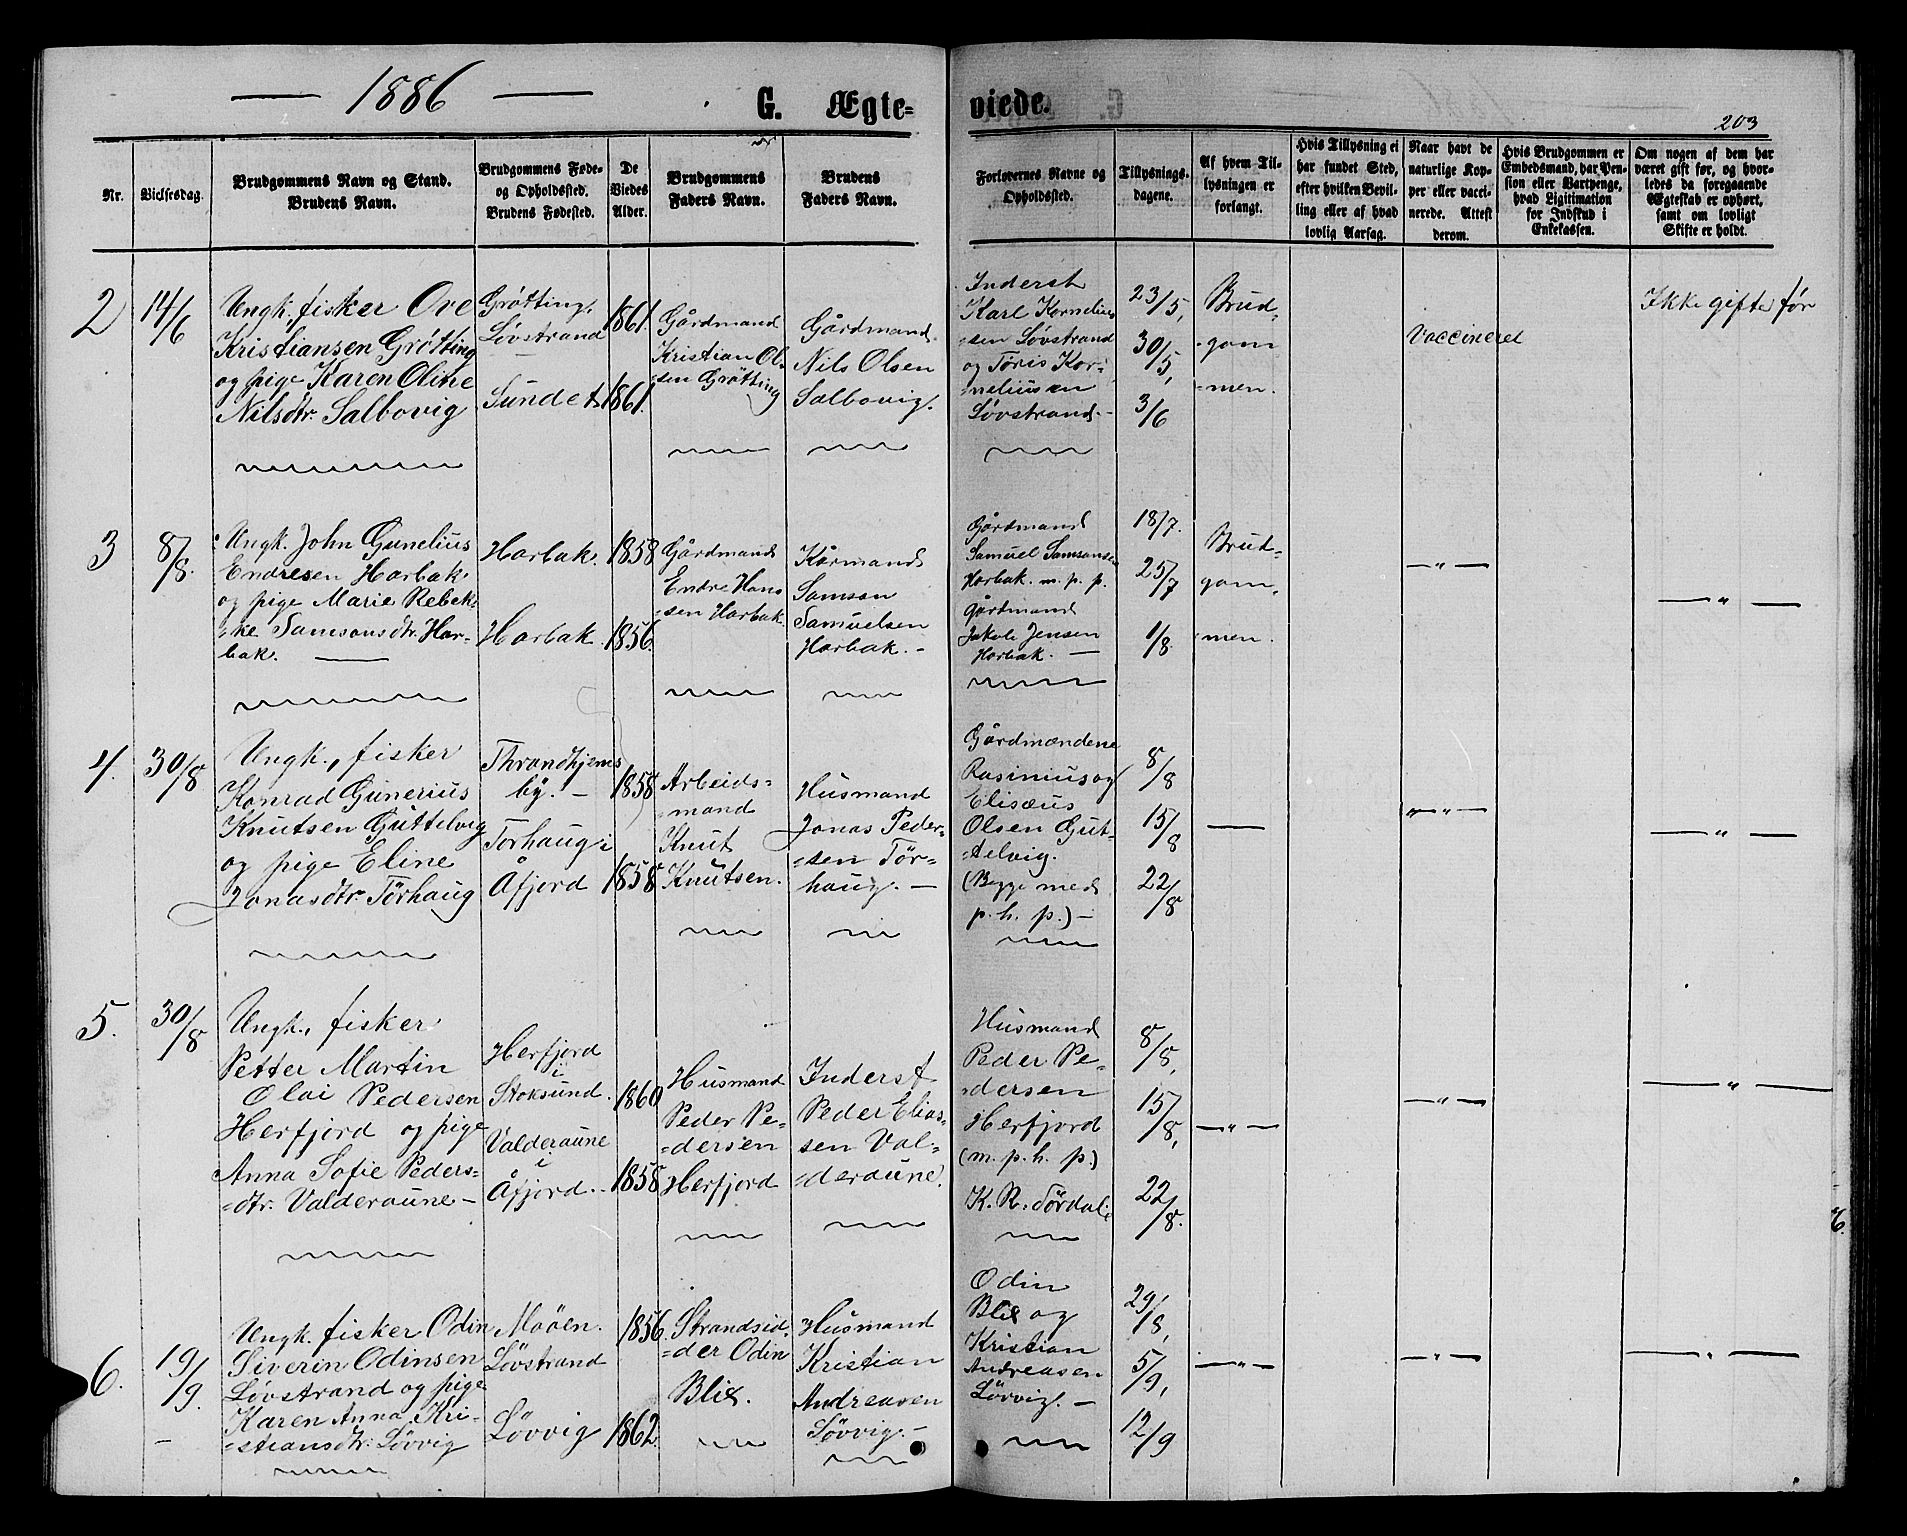 1886
G. Ægte=
viede.
203
Nr.
Vielsesdag.
Brudgommens Navn og Stand.
Brudens Navn.
Brudgommens Føde-
og Opholdssted.
Brudens Fødested.
De
Viedes
Alder.
Brudgommens
Faders Navn.
Brudens
Faders Navn.
Forlovernes Navne og
Opholdssted.
Tillysnings-
dagene.
Af hvem Til-
lysningen er
forlangt.
Hvis Tillysning ei
har fundet Sted,
efter hvilken Bevil-
ling eller af hvad
lovlig Aarsag.
Naar havt de
naturlige Kop-
per eller vacci-
nerede. Attest
derom.
Hvis Brudgommen er
Embedsmand, har Pen-
sion eller Vartpenge,
hvad Ligitimation
for Indskud i
Enkekassen.
Om nogen af dem har
været gift før, og hvor-
ledes da foregaaende
Ægteskab er ophørt,
samt om lovligt
Skifte er holdt.
2
14/6
Ungk. fisker Ove
Kristiansen Grøtting
og pige Karen Oline
Nilsdtr. Salbovig
Grøtting,
Løvstrand
Sundet
1861.
1861.
Gårdmand
Kristian Ol-
sen Grøtting
Gårdmand
Nils Olsen
Salbovig.
Inderst
Karl Kornelius
sen Løvstrand
og Tøris Kor-
neliusen
Løvstrand.-
23/5,
30/5,
3/6
Brud-
gom
men.
Vaccineret
Ikke gifte før
3
8/8.
Ungk. John Gunelius
Endresen Harbak
og pige Marie Rebek-
ke Samsonsdtr. Har-
bak. —
Harbak.
Harbak.
1858
1856.
Gårdmand
Endre Hans
sen Harbak.
Kårmand
Samson
Samuelsen
Harbak. -
Gårdmand
Samuel Samsonsen
Harbak. m. p. p.
gårdmand
Jakob Jensen
Harbak. —
18/7.
25/7
1/8.
Brud-
gom,
men.
— " —
— " —
4.
30/8
Ungk., fisker
Konrad Gunerius
Knutsen Guttelvig
og pige Eline
Jonasdtr. Tørhaug
Throndhjems
by. -
Torhaug i
Åfjord
1858
1858
Arbeids-
mand
Knut
Knutsen.
Husmand
Jonas Peder-
sen Tør-
haug. —
Gårdmændene
Rasinius og
Elisæus
Olsen Gut-
telvig.
(Begge med
p. h. p.) -
8/8
15/8
22/8
—
— " —
— " —
5.
30/8
Ungk., fisker
Petter Martin
Olai Pedersen
Herfjord og pige
Anna Sofie Peders-
dtr. Valderaune -
Herfjord
i
Stoksund.
Valderaune
i
Åfjord. -
1860
1858
Husmand
Peder Pe-
dersen
Herfjord
Inderst
Peder Elias-
sen Val-
deraune.
Husmand
Peder Pe-
dersen
Herfjord
(m. p. h. p.)
K. R. Sørdali
8/8,
15/8,
22/8.
— " —
— " —
— " —
6.
19/9.
Ungk. fisker Odin
Siverin Odinsen
Løvstrand og pige
Karen Anna Kri-
stiansdtr. Løvvig
Moöen.
Løvstrand
Løvvig
1856.
1862.
Strandsid-
der Odin
Blix.
Husmand
Kristian
Andreasen
Løvvig. -
Odin
Blix og
Kristian
Andreasen
Løvvig. -
29/8,
5/9,
12/9
— " —
— " —
— " —